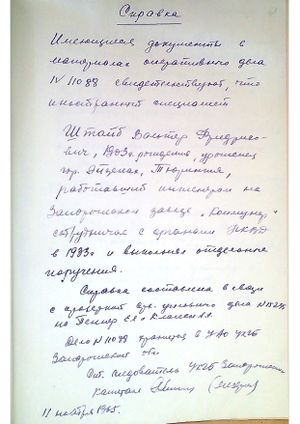 Справка
Имеющиеся документы в
материалах оперативного дела
IV 11088 свидетельствуют, что
иностранный специалист
Штайб Вальтер Фридрихо-
вич, 1903 г. рождения, уроженец
гор. Эйзенах, Тюрингия,
работавший инженером на
Запорожском заводе "Коммунар"
сотрудничал с органами НКВД
в 1933 г и выполнял отдельные
поручения.
Справка составлена в связи
с проверкой арх. уголовного дела
на
Дело N 11088 хранится в УАО УКГБ
Запорожской обл.
Ст. следователь УКГБ Запорожской
капитан
11 ноября 1965.